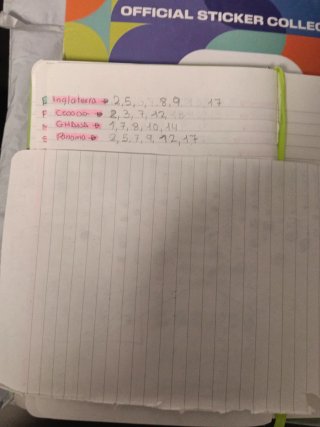 OFFICIAL STICKER COLLEC
Inglaterra → 2, 5, 8, 9, 17
Croacia → 2, 3, 7, 12
Ghana → 1, 7, 8, 10, 14
Panamá → 2, 5, 7, 9, 12, 17